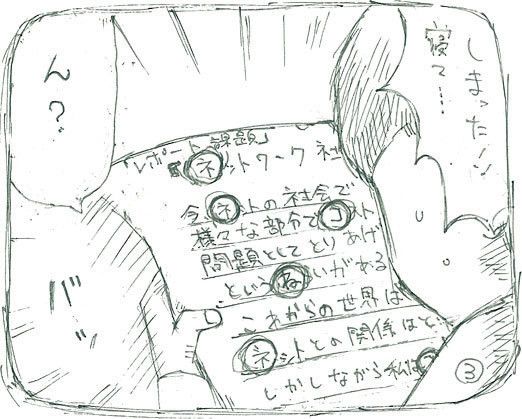 しまった!!
寝て…
ん?
レポート課題」
ネットワーク社
今、ネットの社会で
様々な部分でコスト
問題としてとりあげ
という いがある
これからの世界は
ネットとの関係はと、
しかしながら私は
バッ
③